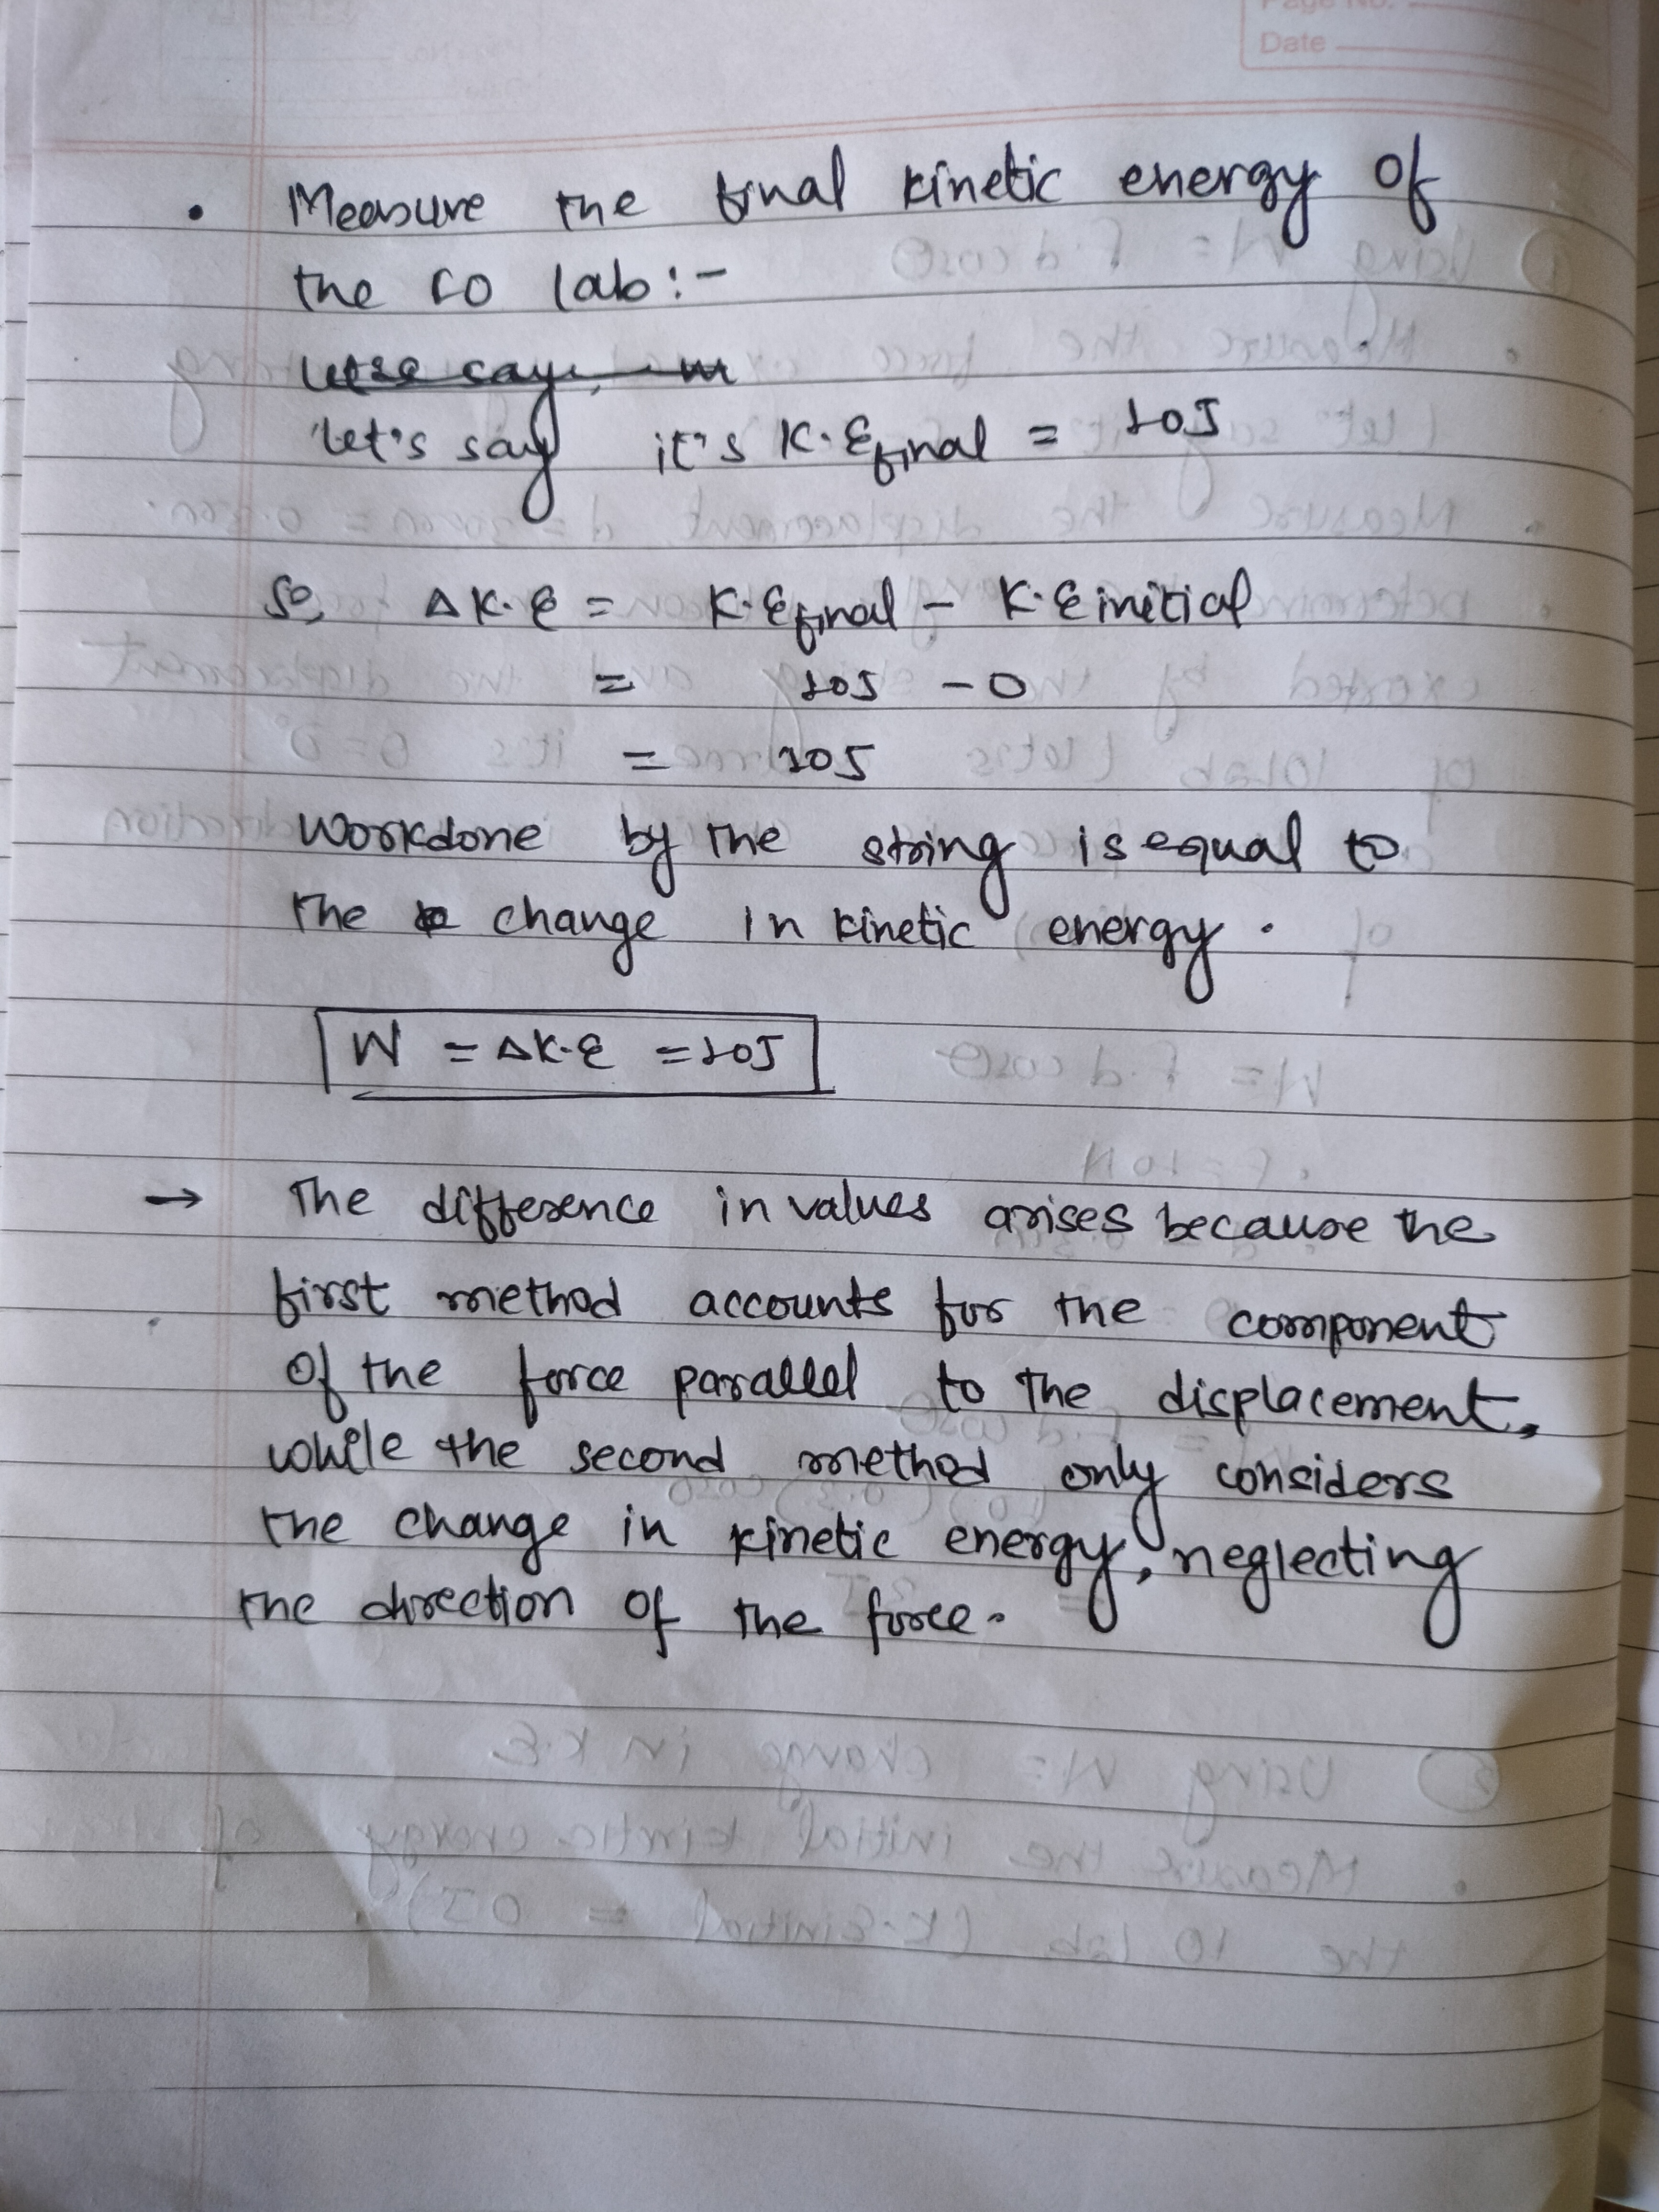 Page No.
Date
• Measure the final kinetic energy of
the 10 lab :-
let's say it's K.Efinal = 10J
So, ΔK.E = K.Efinal - K.Einitial
= 10J - 0
= 10J
Workdone by the string is equal to
the change in kinetic energy.
W = ΔK.E = 10J
→ The difference in values arises because the
first method accounts for the component
of the force parallel to the displacement,
while the second method only considers
the change in kinetic energy, neglecting
the direction of the force.